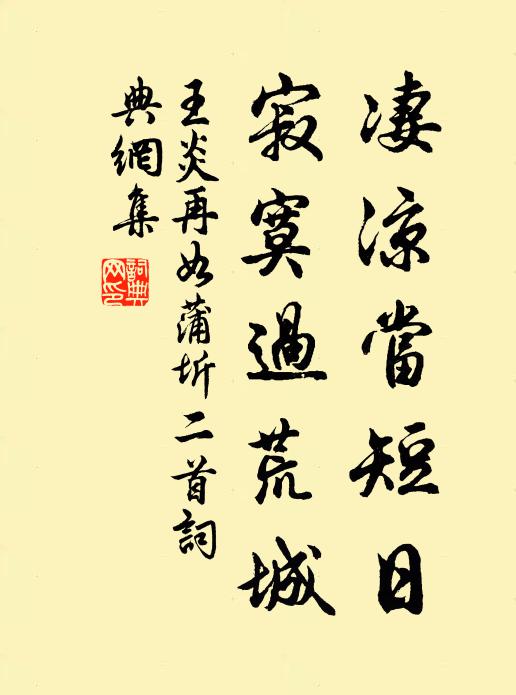 凄涼當短日
寂寞過荒城
王炎再如蒲圻二首詞
典網集
詞典網印